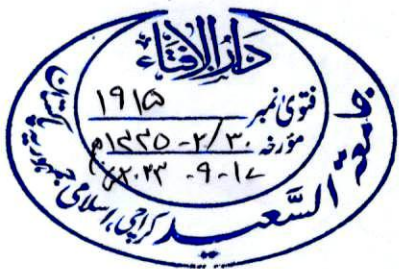 دَارُالاِفتَاء
فتویٰ نمبر ۱۹۱۵
مؤرخہ ۳۰/۲-۱۴۴۵ھ
۱۷-۹-۲۰۲۳ء
جامعۃ السَّعید کراچی، اسلامی جمہوریہ پاکستان